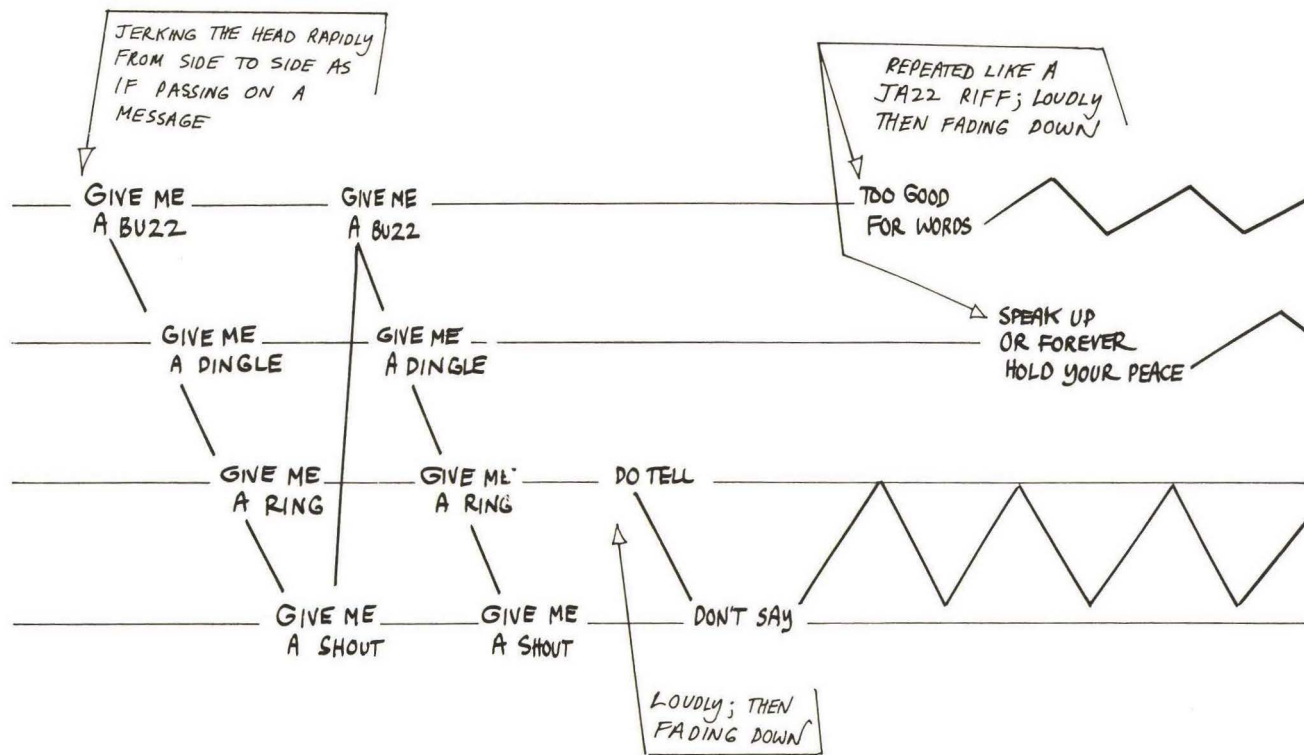 JERKING THE HEAD RAPIDLY
FROM SIDE TO SIDE AS
IF PASSING ON A
MESSAGE
REPEATED LIKE A
JAZZ RIFF; LOUDLY
THEN FADING DOWN
GIVE ME
A BUZZ
GIVE ME
A BUZZ
TOO GOOD
FOR WORDS
GIVE ME
A DINGLE
GIVE ME
A DINGLE
SPEAK UP
OR FOREVER
HOLD YOUR PEACE
GIVE ME
A RING
GIVE ME
A RING
DO TELL
GIVE ME
A SHOUT
GIVE ME
A SHOUT
DON'T SAY
LOUDLY; THEN
FADING DOWN